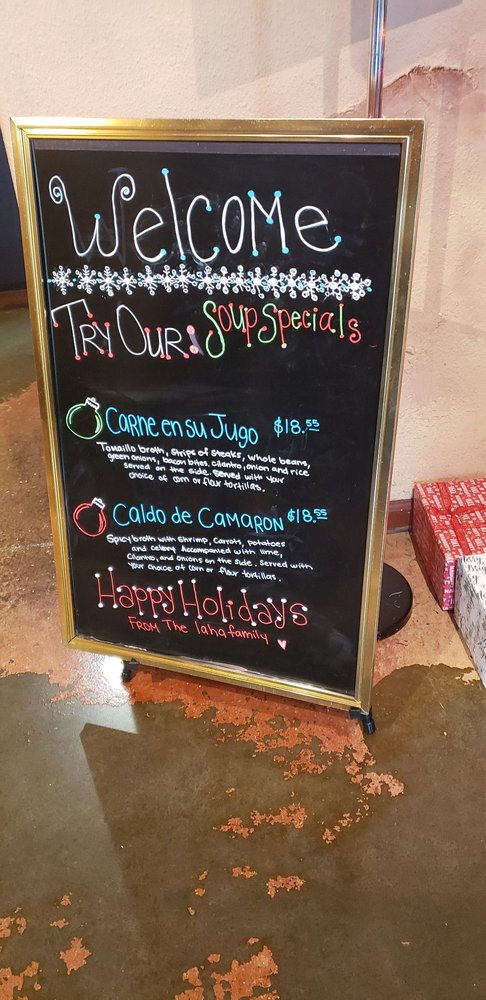 Welcome
Try Our: Soup Specials
Carne en su Jugo $18.55
Tomaillo broth, strips of steaks, whole beans,
green onions, bacon bites, cilantro, onion and rice
served on the side. Served with your
choice of corn or flour tortillas.
Caldo de Camaron $18.55
Spicy broth with shrimp, carrots, potatoes
and celery. Accompanied with lime,
cilantro, and onions on the side. Served with
your choice of corn or flour tortillas.
Happy Holidays
From The family